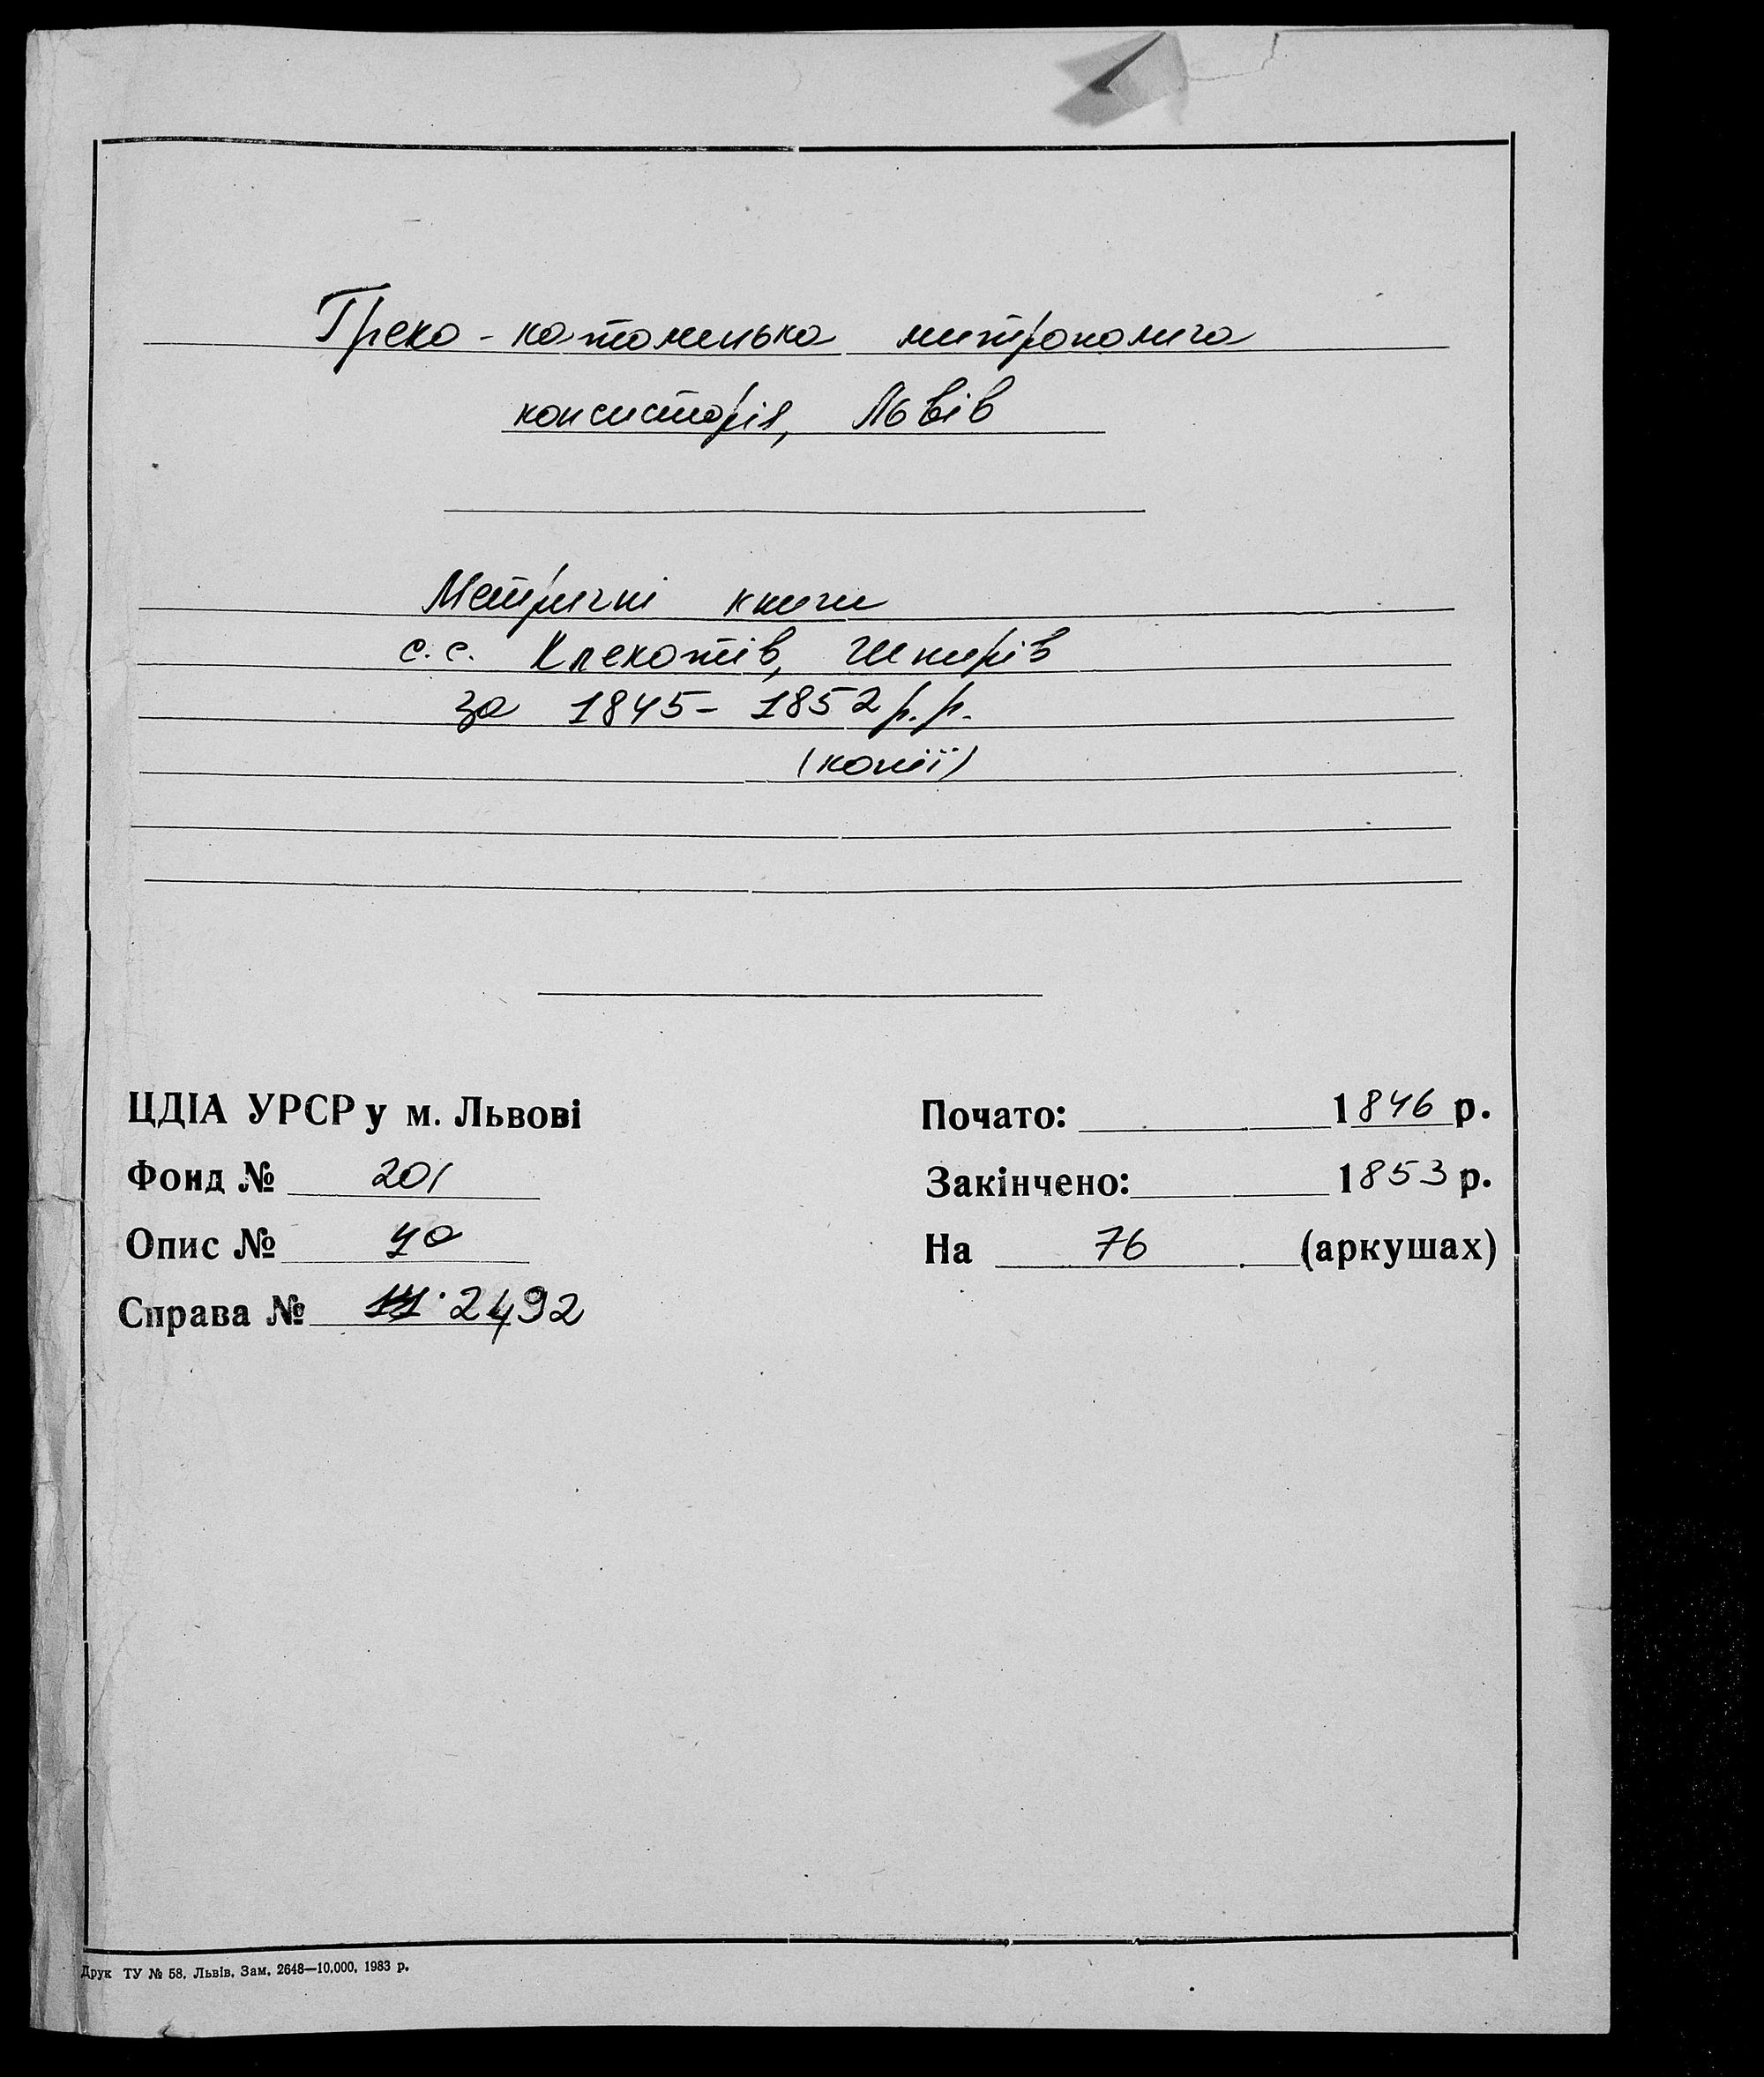 Греко-католицька митрополича
консисторія, Львів
Метричні книги
с.с. Клекотів, Шнирів
за 1845-1852 р.р.
(копії)
ЦДІА УРСР у м. Львові
Фонд № 201
Опис № 4а
Справа № 2492
Почато: 1846 р.
Закінчено: 1853 р.
На 76 (аркушах)
Друк ТУ № 58. Львів. Зам. 2648—10.000. 1983 р.